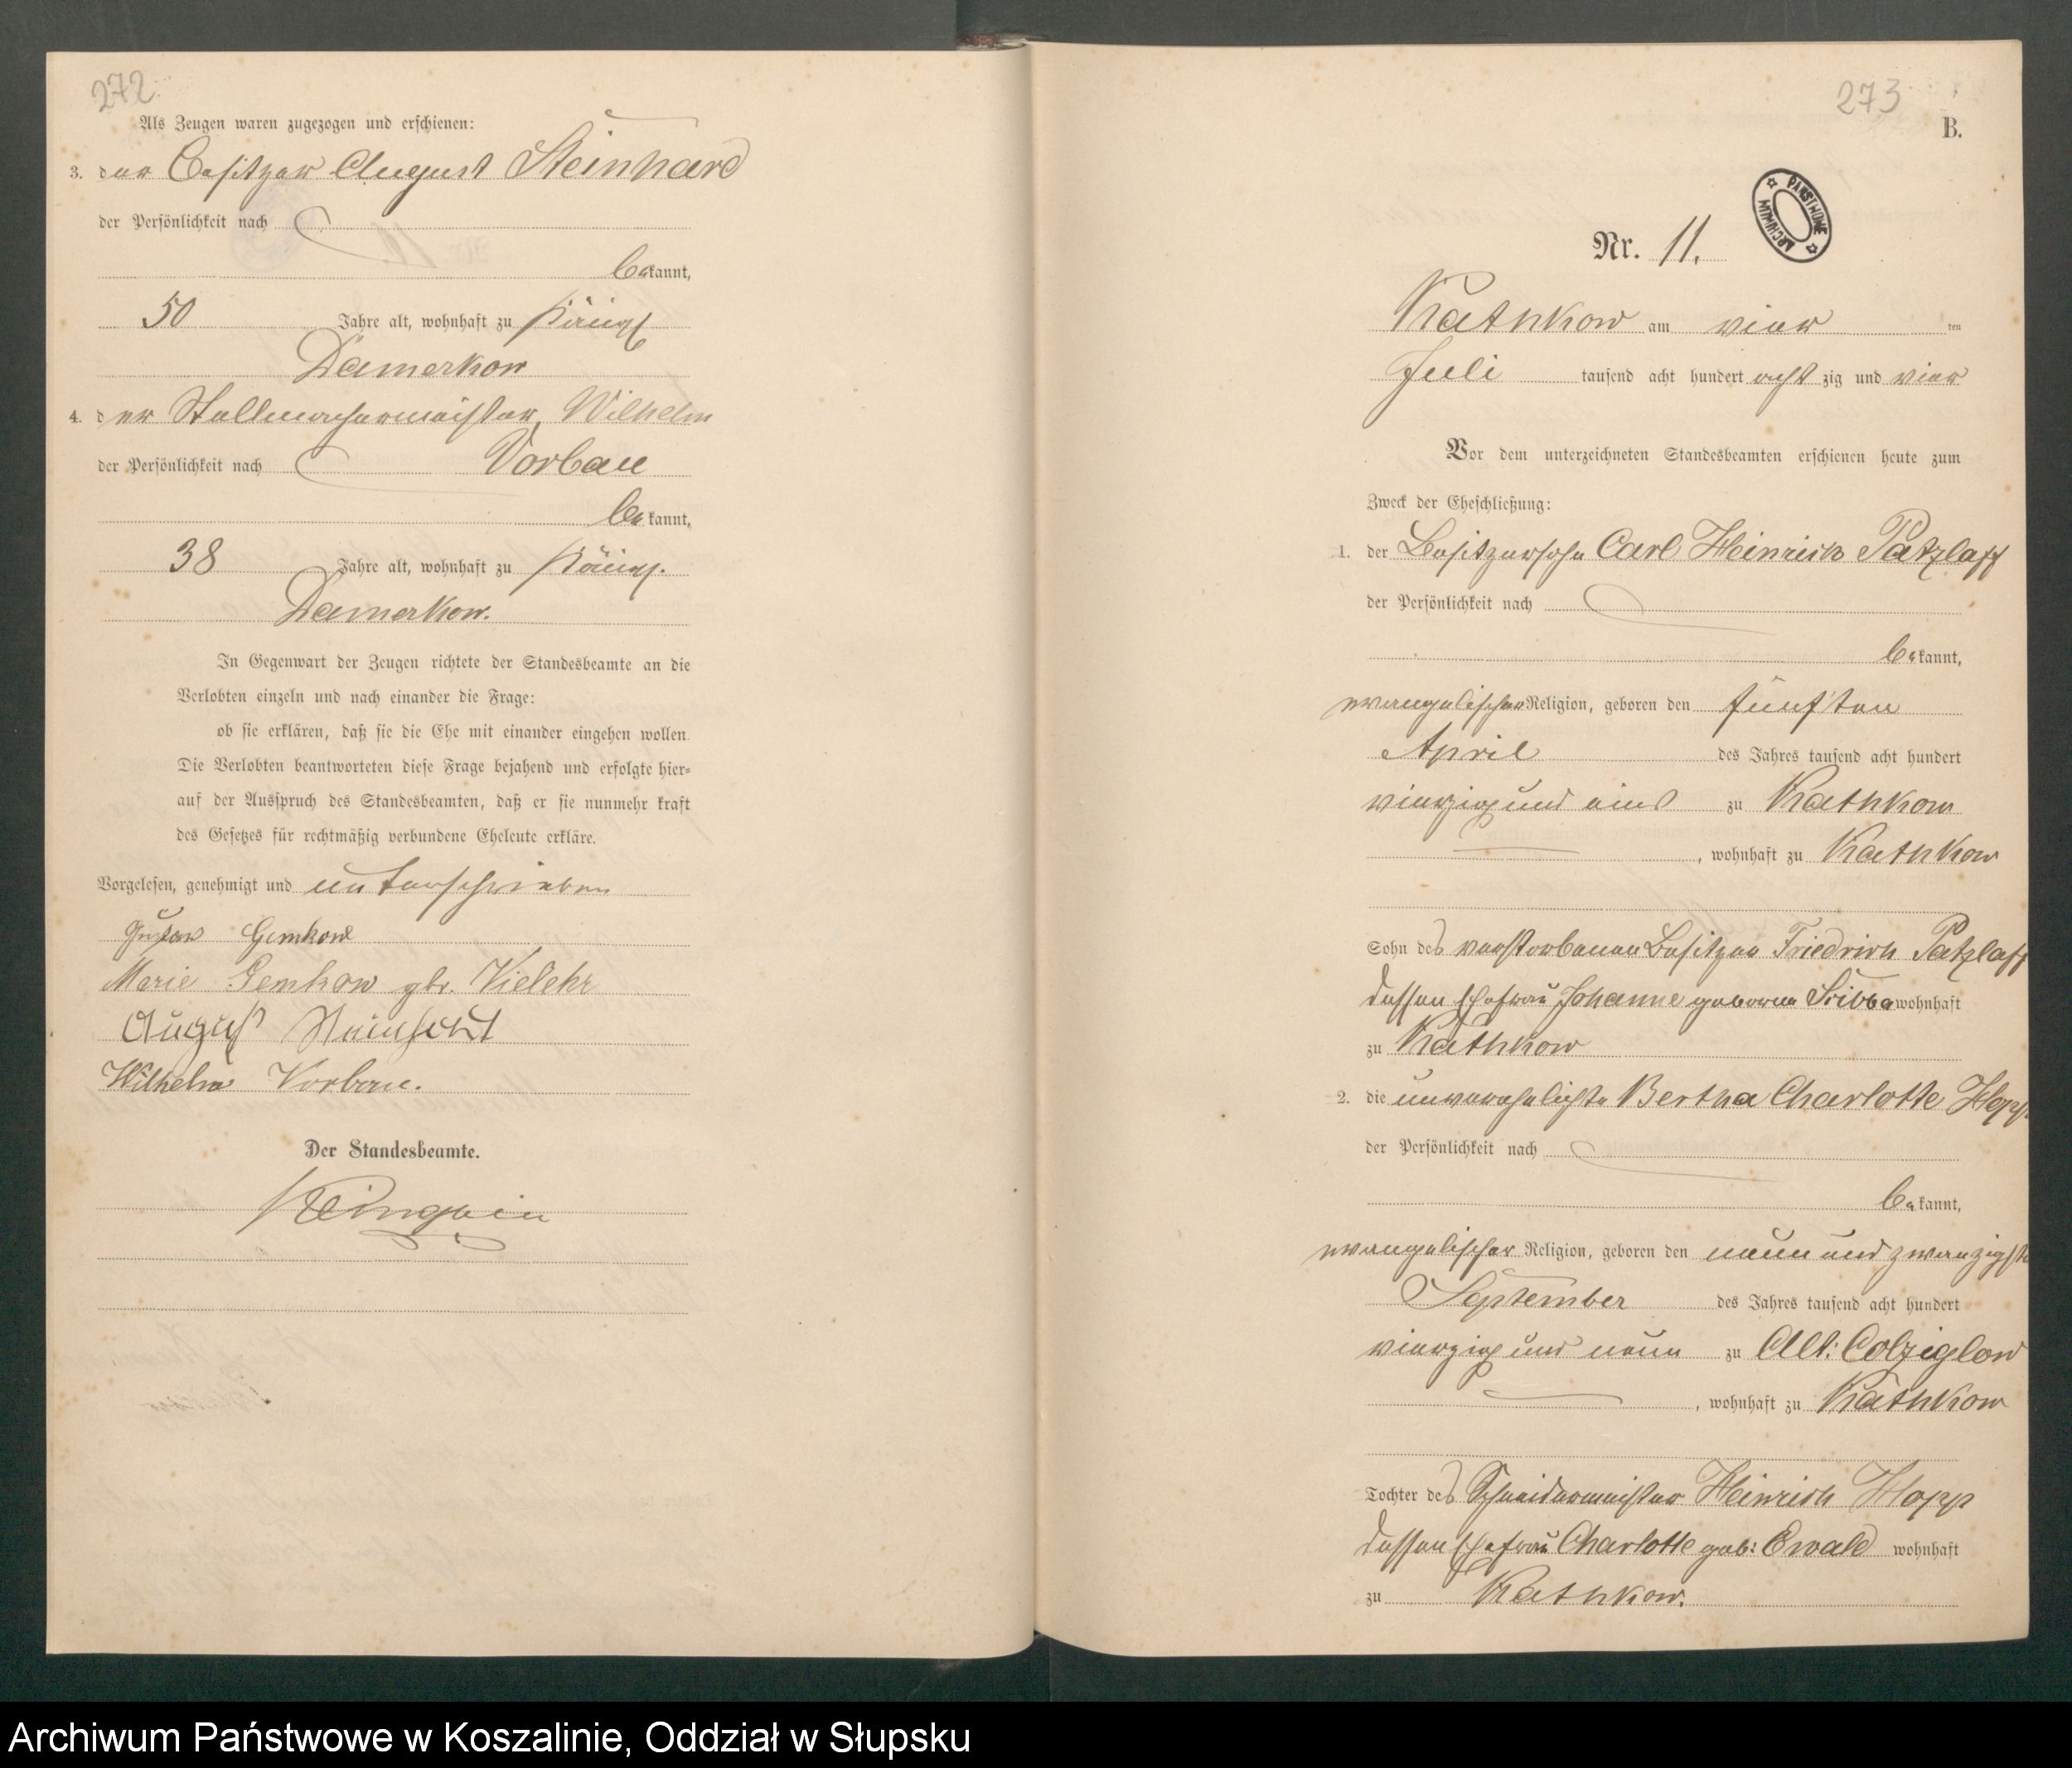 272
Als Zeugen waren zugezogen und erschienen:
3. der Besitzer August Steinhard
der Persönlichkeit nach
bekannt,
50 Jahre alt, wohnhaft zu Königl
Damerkow
4. der Stellmachermeister Wilhelm
der Persönlichkeit nach Vorbau
bekannt,
38 Jahre alt, wohnhaft zu Königl.
Damerkow.
In Gegenwart der Zeugen richtete der Standesbeamte an die
Verlobten einzeln und nach einander die Frage:
ob sie erklären, daß sie die Ehe mit einander eingehen wollen.
Die Verlobten beantworteten diese Frage bejahend und erfolgte hier-
auf der Ausspruch des Standesbeamten, daß er sie nunmehr kraft
des Gesetzes für rechtmäßig verbundene Eheleute erkläre.
Vorgelesen, genehmigt und unterschrieben
Gustav Gemkow
Marie Gemkow gbr. Vielehr
August
Wilhelm Vorbau.
Der Standesbeamte.
273
B.
ARCHIWUM PAŃSTWOWE
Nr. 11.
Kathkow am vier ten
Juli tausend acht hundert acht zig und vier
Vor dem unterzeichneten Standesbeamten erschienen heute zum
Zweck der Eheschließung:
1. der Besitzersohn Carl Heinrich Patzlaff
der Persönlichkeit nach
bekannt,
evangelischer Religion, geboren den fünften
April des Jahres tausend acht hundert
vierzig und eins zu Kathkow
, wohnhaft zu Kathkow
Sohn des verstorbenen Besitzer Friedrich Patzlaff
dessen Ehefrau Johanne geborene wohnhaft
zu Kathkow
2. die unverehelichte Bertha Charlotte Hopp
der Persönlichkeit nach
bekannt,
evangelischer Religion, geboren den neun und zwanzigsten
September des Jahres tausend acht hundert
vierzig und neun zu Alt: Colziglow
, wohnhaft zu Kathkow
Tochter des Schneidermeister Heinrich Hopp
dessen Ehefrau Charlotte geb: Ewald wohnhaft
zu Kathkow.
Archiwum Państwowe w Koszalinie, Oddział w Słupsku